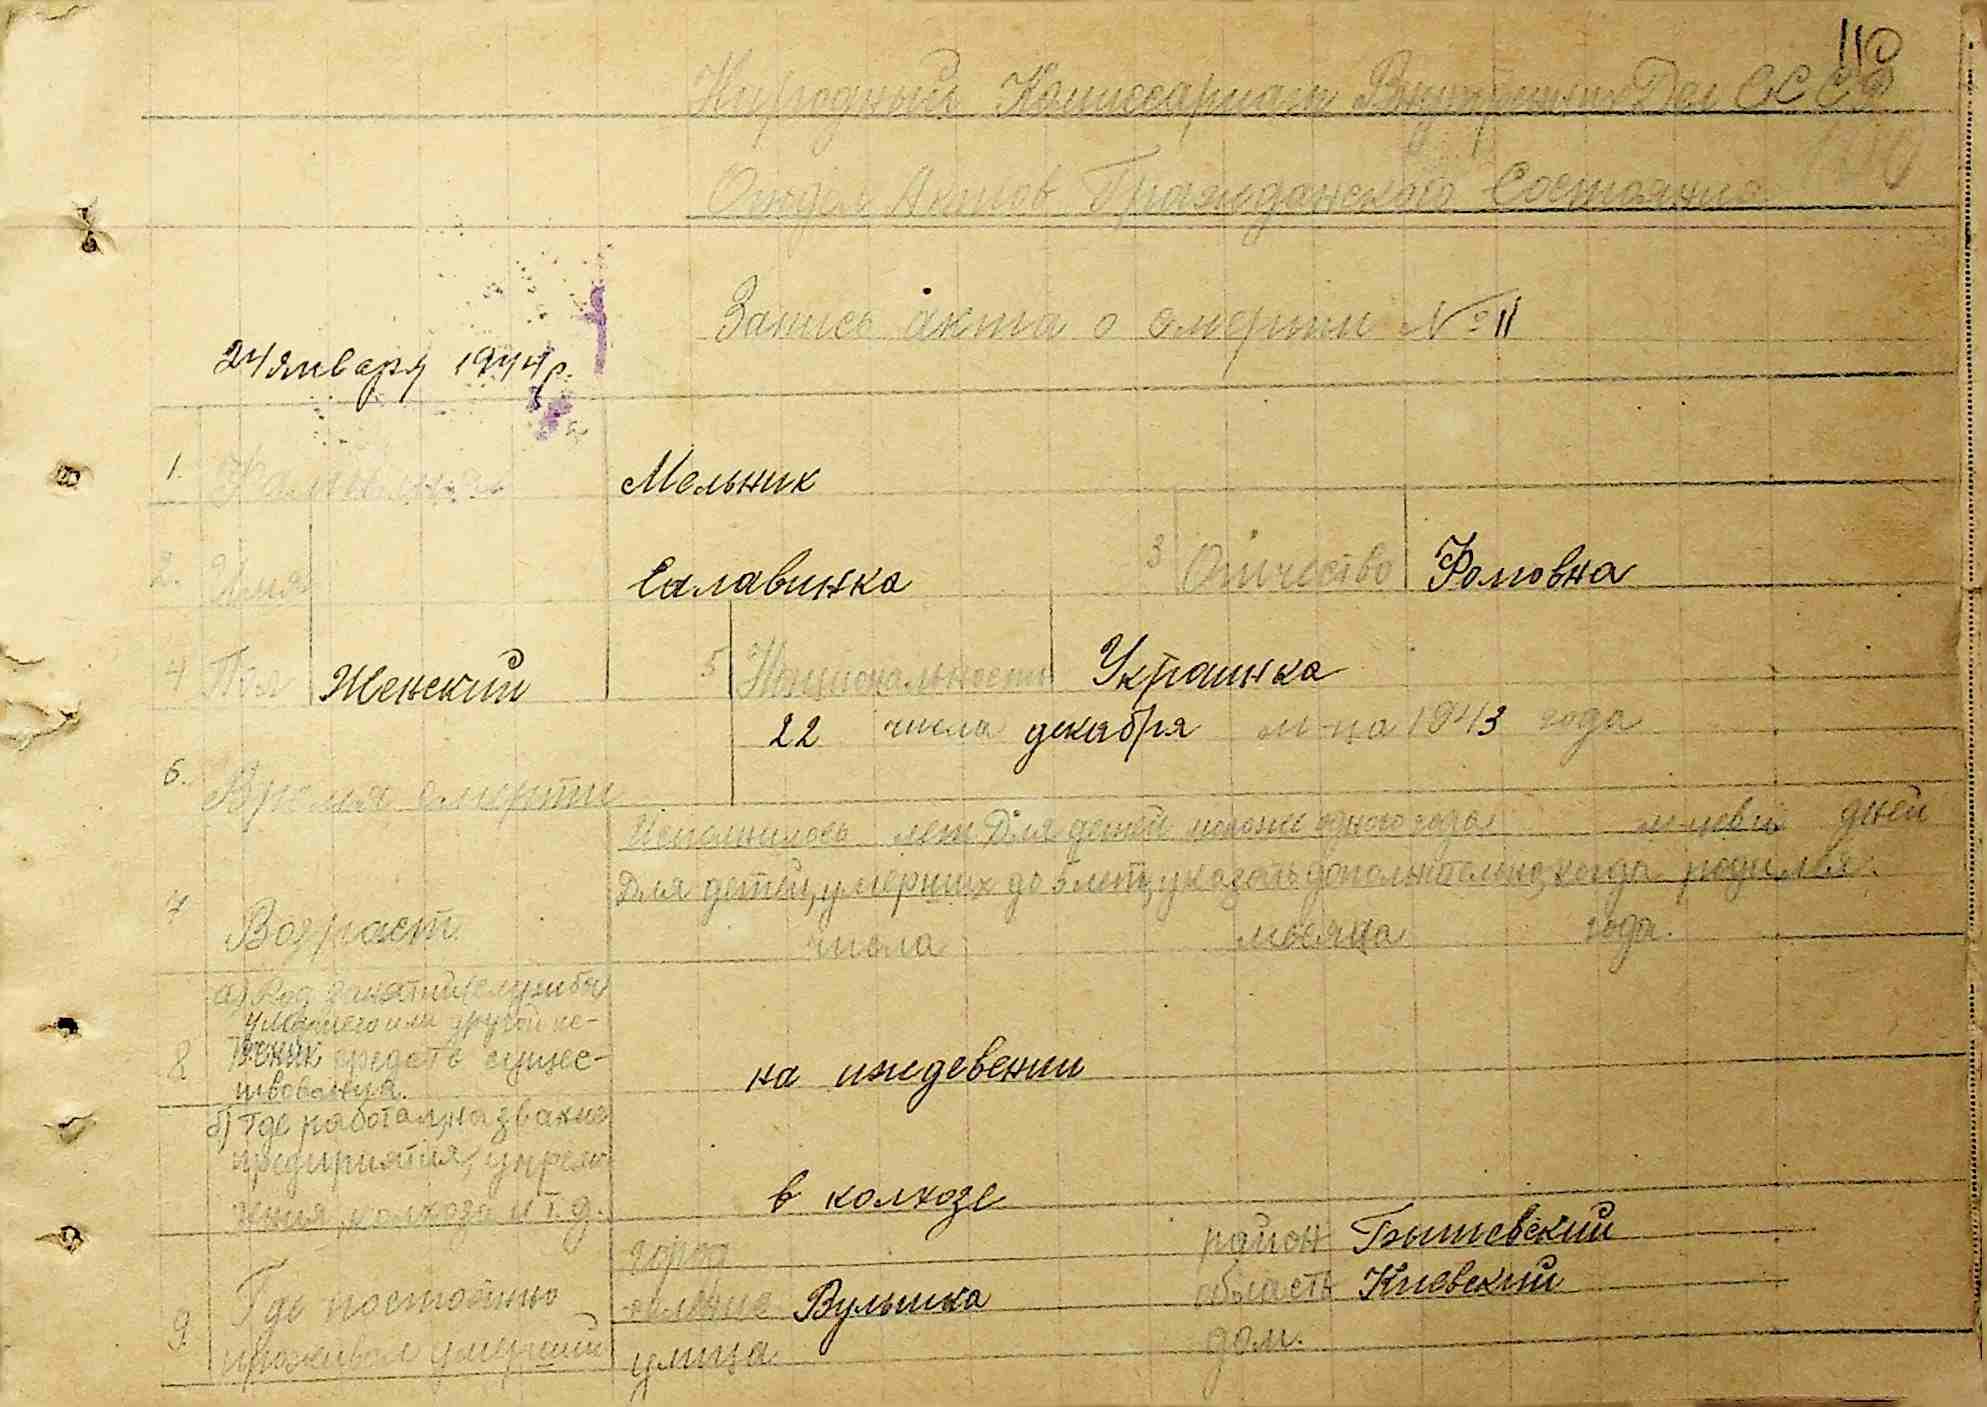 110
Народный Комиссариат Внутренних Дел СССР
Отдел Актов Гражданского Состояния
Запись акта о смерти № 11
24 января 1944 р.
1. Фамилия Мельник
2. Имя Салавинка 3 Отчество Фомовна
4 Пол Женский 5 Национальность Украинка
22 числа декабря м-ца 1943 года
6. Время смерти
Исполнилось лет Для детей моложе одного года м-цев дней
Для детей, умерших до 5 лет, указать дополнительно, когда родился
7 Возраст числа месяца года.
а) Род занятий (службы)
умершего или другой ис-
8 точник средств сущес-
твования. на иждевении
б) Где работал, название
предприятия, учреж-
дения, колхоза и т.д. в колхозе
город район Бышевский
9 Где постоянно селение Вулшка область Киевский
проживал умерший улица дом.